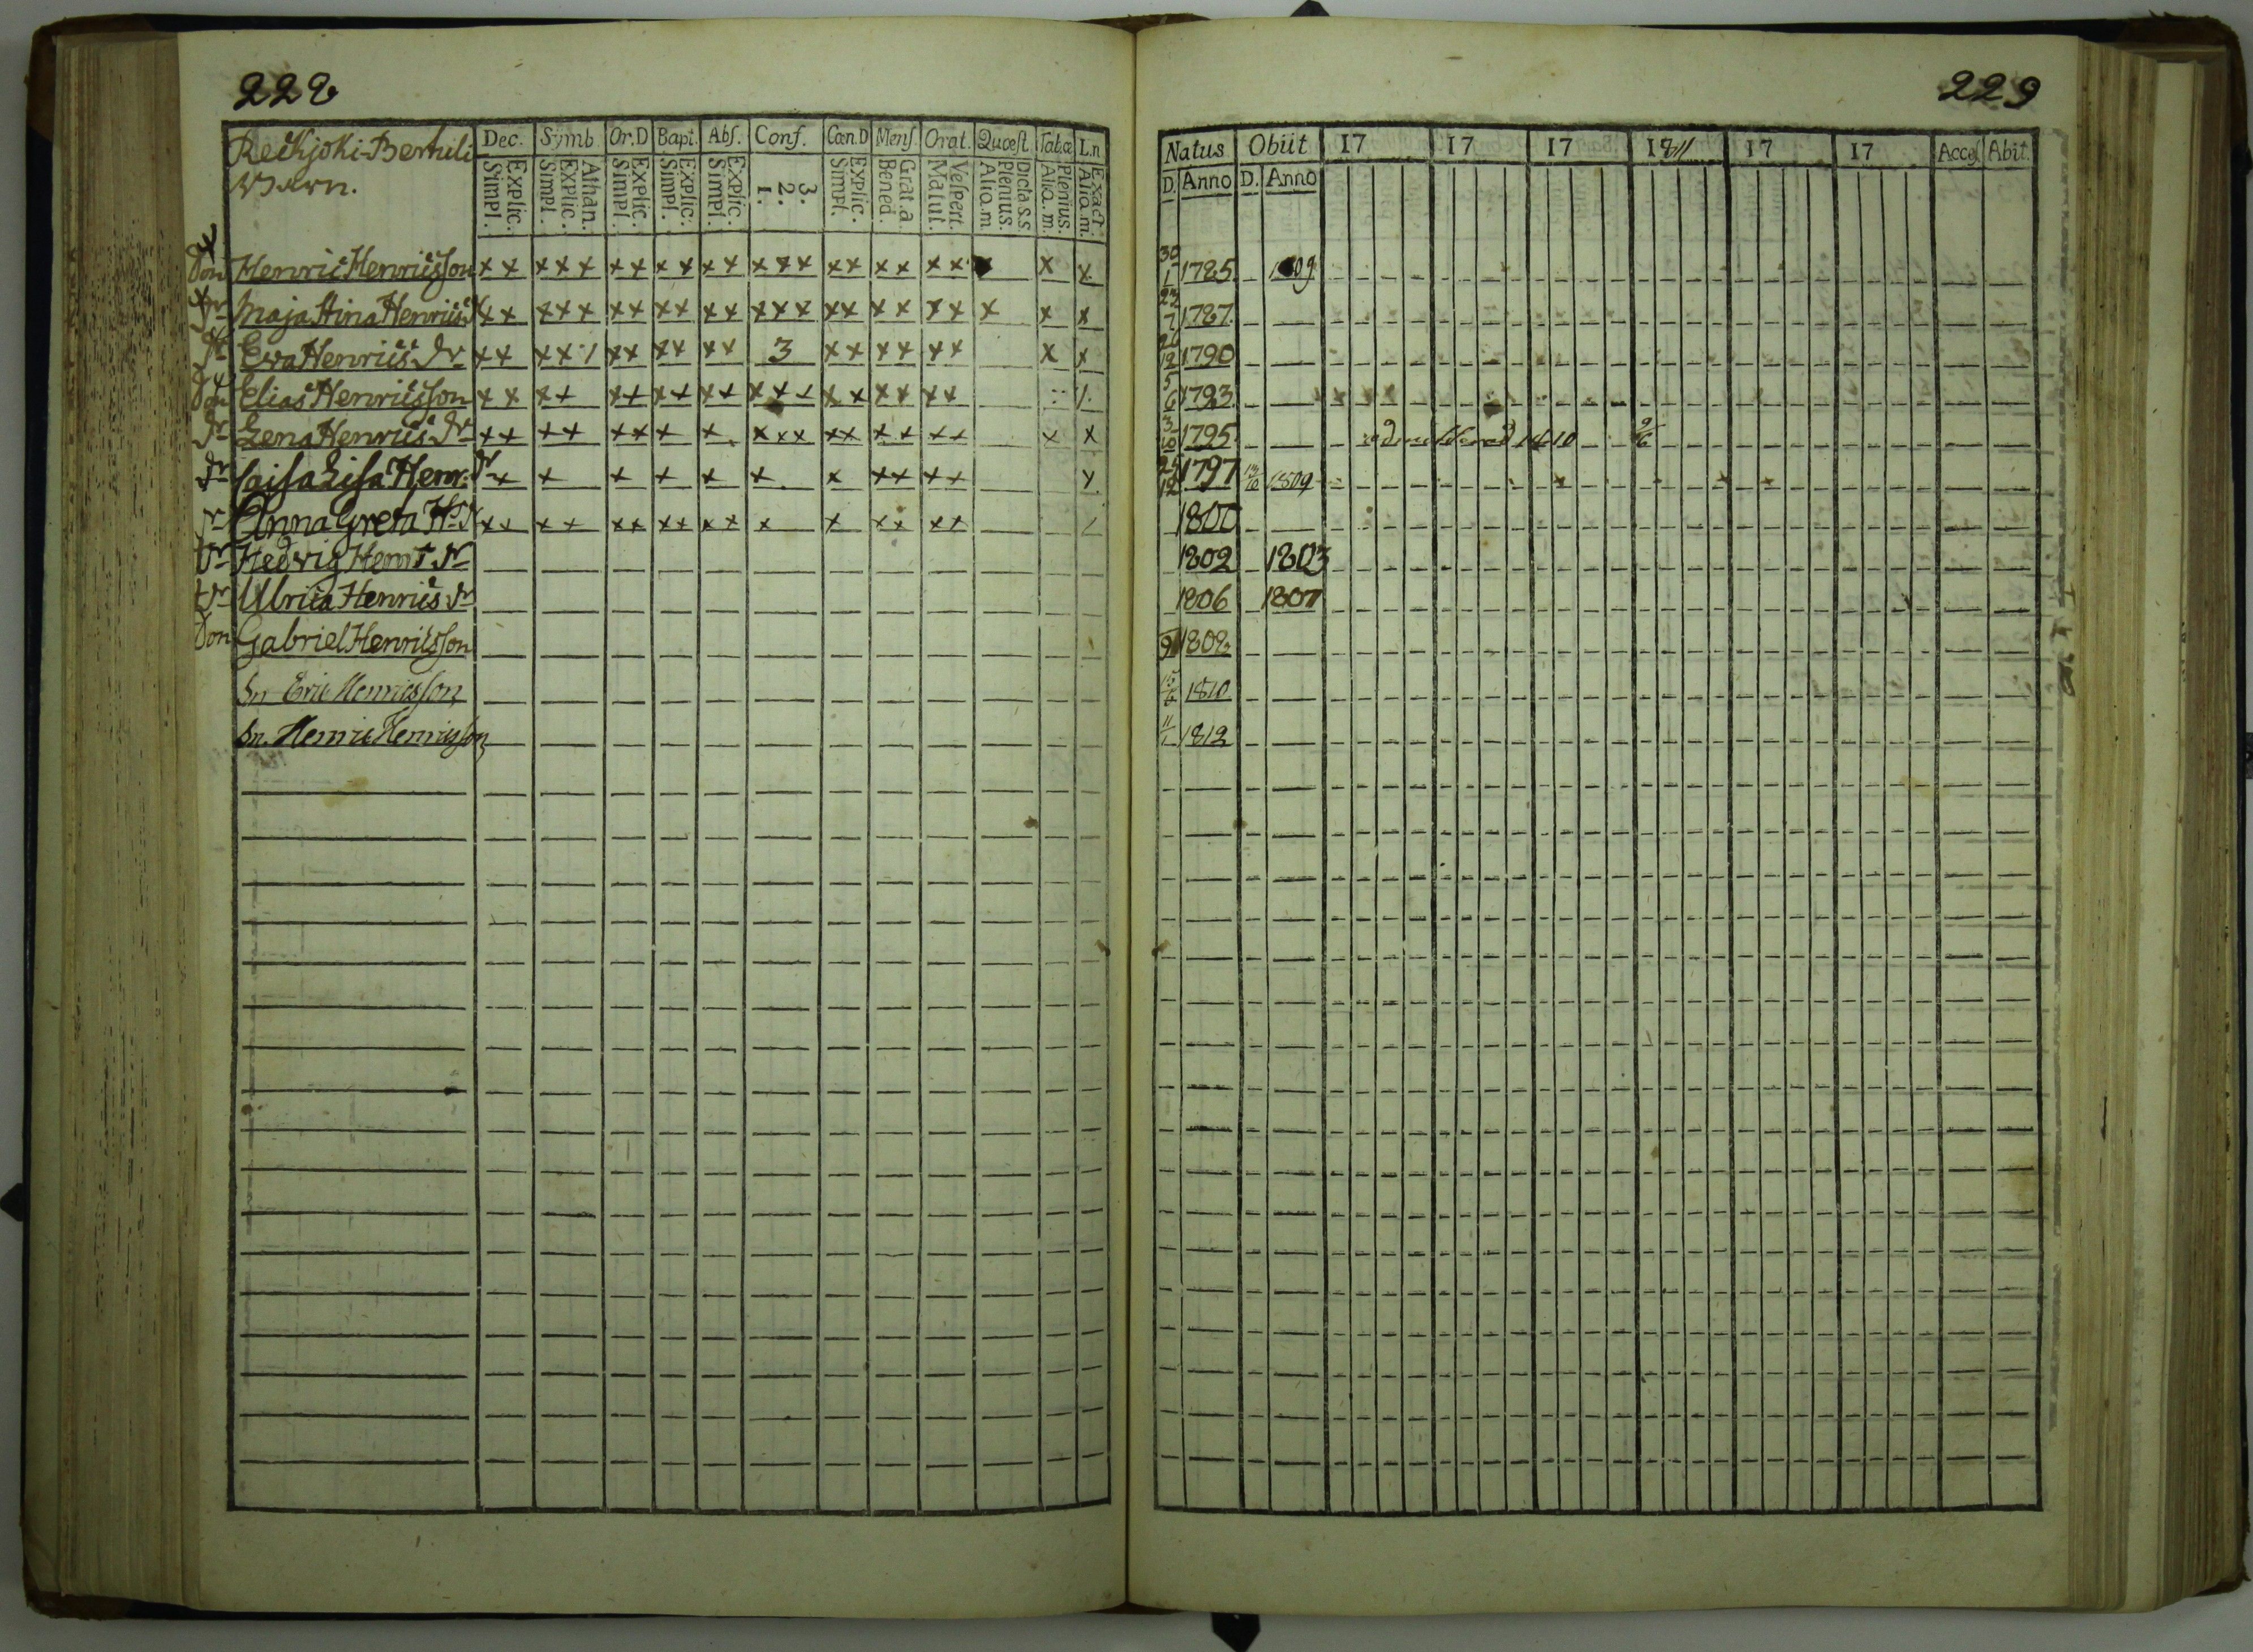 228
Dec. Symb. Or.D Bapt. Abſ. Conf. Cœn.D Menſ. Orat. Quœſt. Tab.œ L.n
Explic. Simpl. Athan. Explic. Simpl. Explic. Simpl. Explic. Simpl. Explic. Simpl. 3. 2. 1. Explic. Simpl. Grat.a Bened. Veſpert. Matut. Dicta S.S. Plenius. Alia.m Plenius. Alia.m. Exact. Alia.m.
Reckjoki-Bertuli
Barn.
Son Henric Henricsson x x x x x x x x x x x x x x x x x x x x x x
Dr Maja Stina Henrics x x x x x x x x x x x x x x x x x x x x x x x
Dr Eva Henrics Dr x x x x / x x x x x x 3 x x x x x x x x
Son Elias Henricsson x x x x x x x x x x x x x x x x x x x
Dr Lena Henrics Dr x x x x x x x x x x x x x x x x x x x
Dr Caisa Lisa Henr: Dr x x x x x x x x x x x x x
Dr Anna Greta H: Dr x x x x x x x x x x x x x x x x
Dr Hedvig Henr: Dr
Dr Ulrica Henrics Dr
Son Gabriel Henricsson
Sn Eric Henricsson
Sn. Henric Henricsson
229
Natus Obiit 17 17 17 1811 17 17 Acceſ. Abit.
D. Anno D. Anno
30/1 1785 1809
22/7 1787
26/12 1790
5/6 1793
3/10 1795 1810 9/6
25/12 1797 13/10 1809
1800
1802 1803
1806 1807
9 1808
1810
11/1 1812